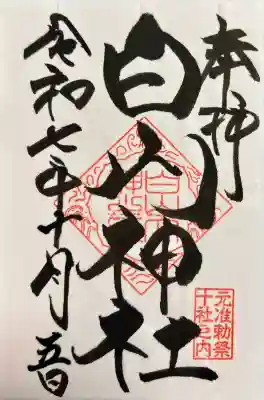 奉拝
白山神社
元准勅祭
十社之内
令和七年十月五日